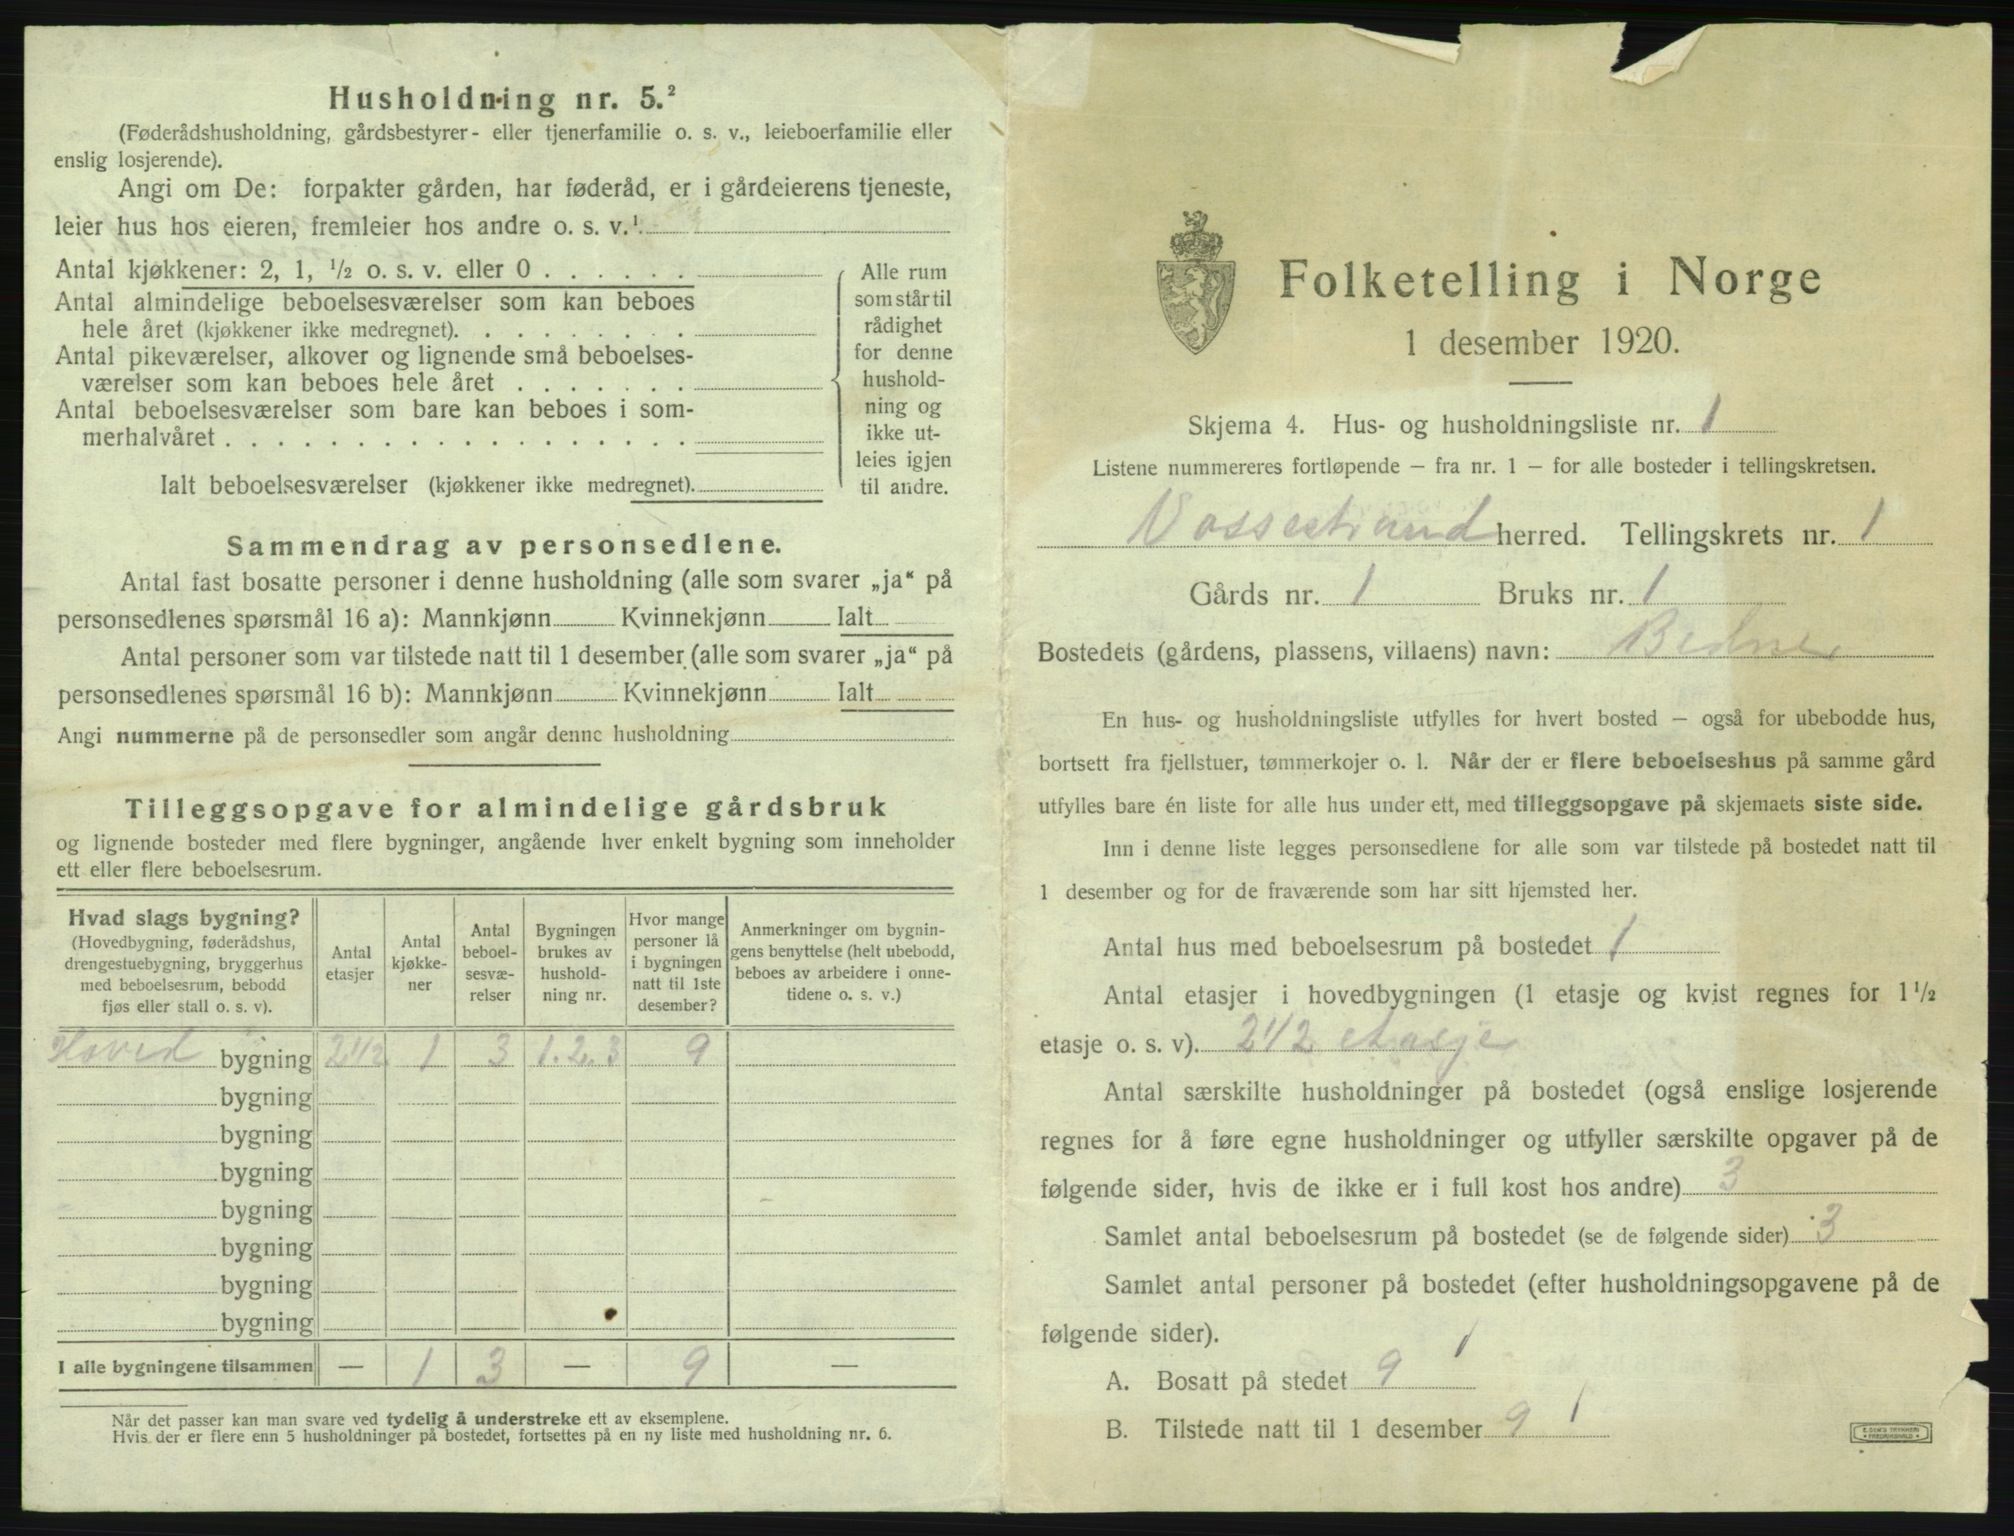 Husholdning nr. 5.²
(Føderådshusholdning, gårdsbestyrer- eller tjenerfamilie o. s. v., leieboerfamilie eller
enslig losjerende).
Angi om De: forpakter gården, har føderåd, er i gårdeierens tjeneste,
leier hus hos eieren, fremleier hos andre o. s. v.¹
Antal kjøkkener: 2, 1, ½ o. s. v. eller 0 . . . . . .
Antal almindelige beboelsesværelser som kan beboes
hele året (kjøkkener ikke medregnet). . . . . . . .
Antal pikeværelser, alkover og lignende små beboelses-
værelser som kan beboes hele året . . . . . . .
Antal beboelsesværelser som bare kan beboes i som-
merhalvåret . . . . . . . . . . . . . . . . .
Ialt beboelsesværelser (kjøkkener ikke medregnet).
Alle rum
som står til
rådighet
for denne
hushold-
ning og
ikke ut-
leies igjen
til andre.
Sammendrag av personsedlene.
Antal fast bosatte personer i denne husholdning (alle som svarer „ja“ på
personsedlenes spørsmål 16 a): Mannkjønn Kvinnekjønn Ialt
Antal personer som var tilstede natt til 1 desember (alle som svarer „ja“ på
personsedlenes spørsmål 16 b): Mannkjønn Kvinnekjønn Ialt
Angi nummerne på de personsedler som angår denne husholdning
Tilleggsopgave for almindelige gårdsbruk
og lignende bosteder med flere bygninger, angående hver enkelt bygning som inneholder
ett eller flere beboelsesrum.
Hvad slags bygning?
(Hovedbygning, føderådshus,
drengestuebygning, bryggerhus
med beboelsesrum, bebodd
fjøs eller stall o. s. v).
Antal
etasjer
Antal
kjøkke-
ner
Antal
beboel-
sesvæ-
relser
Bygningen
brukes av
hushold-
ning nr.
Hvor mange
personer lå
i bygningen
natt til 1ste
desember?
Anmerkninger om bygnin-
gens benyttelse (helt ubebodd,
beboes av arbeidere i onne-
tidene o. s. v.)
Hoved bygning 2 1/2 1 3 1. 2. 3 9
bygning
bygning
bygning
bygning
bygning
bygning
bygning
I alle bygningene tilsammen — 1 3 — 9 —
Når det passer kan man svare ved tydelig å understreke ett av eksemplene.
Hvis der er flere enn 5 husholdninger på bostedet, fortsettes på en ny liste med husholdning nr. 6.
Folketelling i Norge
1 desember 1920.
Skjema 4. Hus- og husholdningsliste nr. 1
Listene nummereres fortløpende — fra nr. 1 — for alle bosteder i tellingskretsen.
Vossestrand herred. Tellingskrets nr. 1
Gårds nr. 1 Bruks nr. 1
Bostedets (gårdens, plassens, villaens) navn:
En hus- og husholdningsliste utfylles for hvert bosted — også for ubebodde hus,
bortsett fra fjellstuer, tømmerkojer o. l. Når der er flere beboelseshus på samme gård
utfylles bare én liste for alle hus under ett, med tilleggsopgave på skjemaets siste side.
Inn i denne liste legges personsedlene for alle som var tilstede på bostedet natt til
1 desember og for de fraværende som har sitt hjemsted her.
Antal hus med beboelsesrum på bostedet 1
Antal etasjer i hovedbygningen (1 etasje og kvist regnes for 1½
etasje o. s. v). 2 1/2 etasje
Antal særskilte husholdninger på bostedet (også enslige losjerende
regnes for å føre egne husholdninger og utfyller særskilte opgaver på de
følgende sider, hvis de ikke er i full kost hos andre) 3
Samlet antal beboelsesrum på bostedet (se de følgende sider) 3
Samlet antal personer på bostedet (efter husholdningsopgavene på de
følgende sider).
A. Bosatt på stedet 9 1
B. Tilstede natt til 1 desember 9 1
E. SEM'S TRYKKERI
• FREDRIKSHALD •